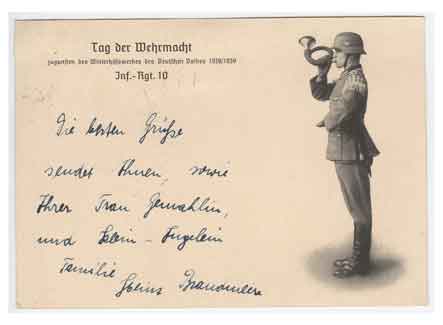 Tag der Wehrmacht
zugunsten des Winterhilfswerkes des Deutschen Volkes 1938/1939
Inf.-Rgt. 10
Die besten Grüße
sendet Ihnen, sowie
Ihrer Frau Gemahlin,
und Klein-Ingelein
Familie
Heinz